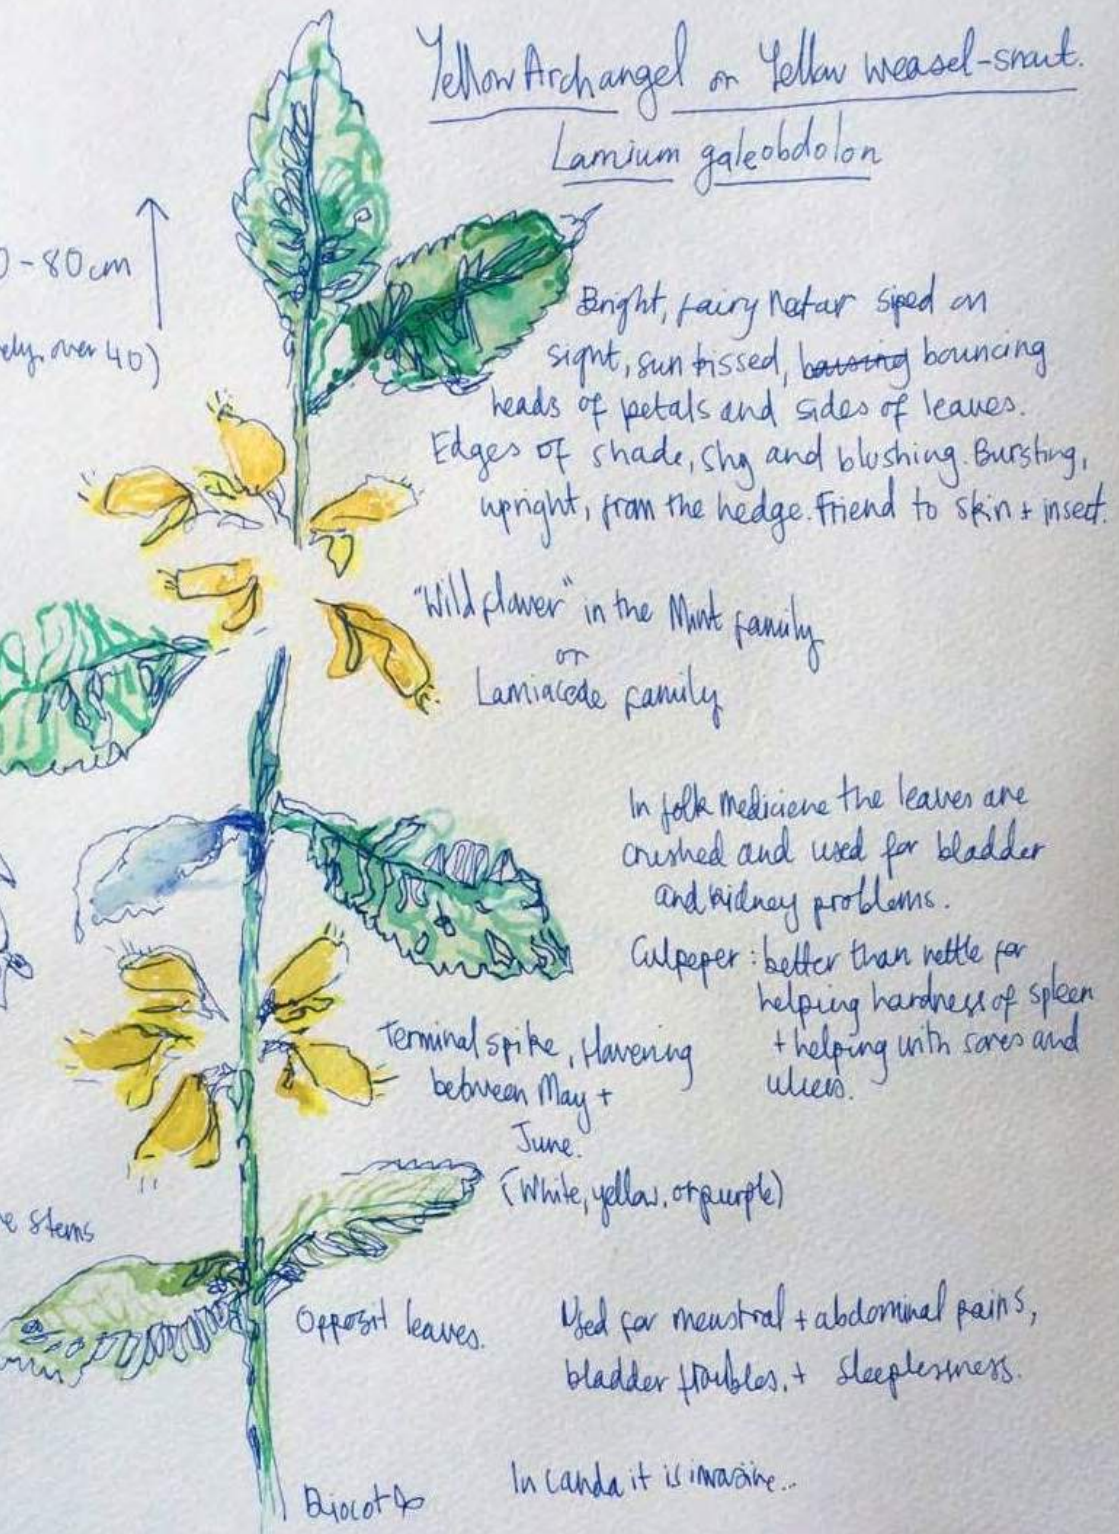 Yellow Archangel or Yellow weasel-snout.
Lamium galeobdolon
0-80cm
ely, over 40)
Bright, fairy nectar siped on
sight, sun kissed, bouncing
heads of petals and sides of leaves.
Edges of shade, shy and blushing. Bursting,
upright, from the hedge. Friend to skin + insect.
"Wild flower" in the Mint family
or
Lamiacede family
In folk mediciene the leaves are
crushed and used for bladder
and kidney problems.
Culpeper: better than nettle for
helping hardness of spleen
+ helping with sores and
ulcers.
Terminal spike, flowering
between May +
June.
(White, yellow, or purple)
e stems
Opposit leaves.
Used for menstral + abdominal pains,
bladder troubles, + sleeplessness.
In Canda it is invasive..